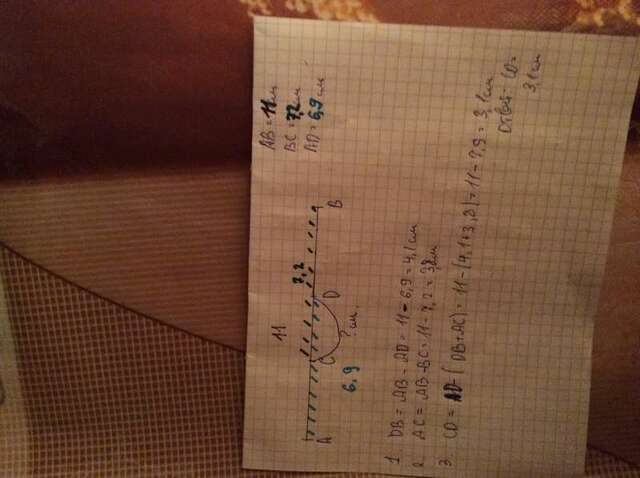 AB = 11 см
BC = 7,2 см
AD = 6,9 см
11
7,2
A C D B
? см.
6.9
1 DB = AB - AD = 11 - 6,9 = 4,1 см
2. AC = AB - BC = 11 - 7,2 = 3,8 см
3. CD = (DB + AC) = 11 - (4,1 + 3,8) = 11 - 7,9 = 3,1 см
Ответ: CD =
3,1 см